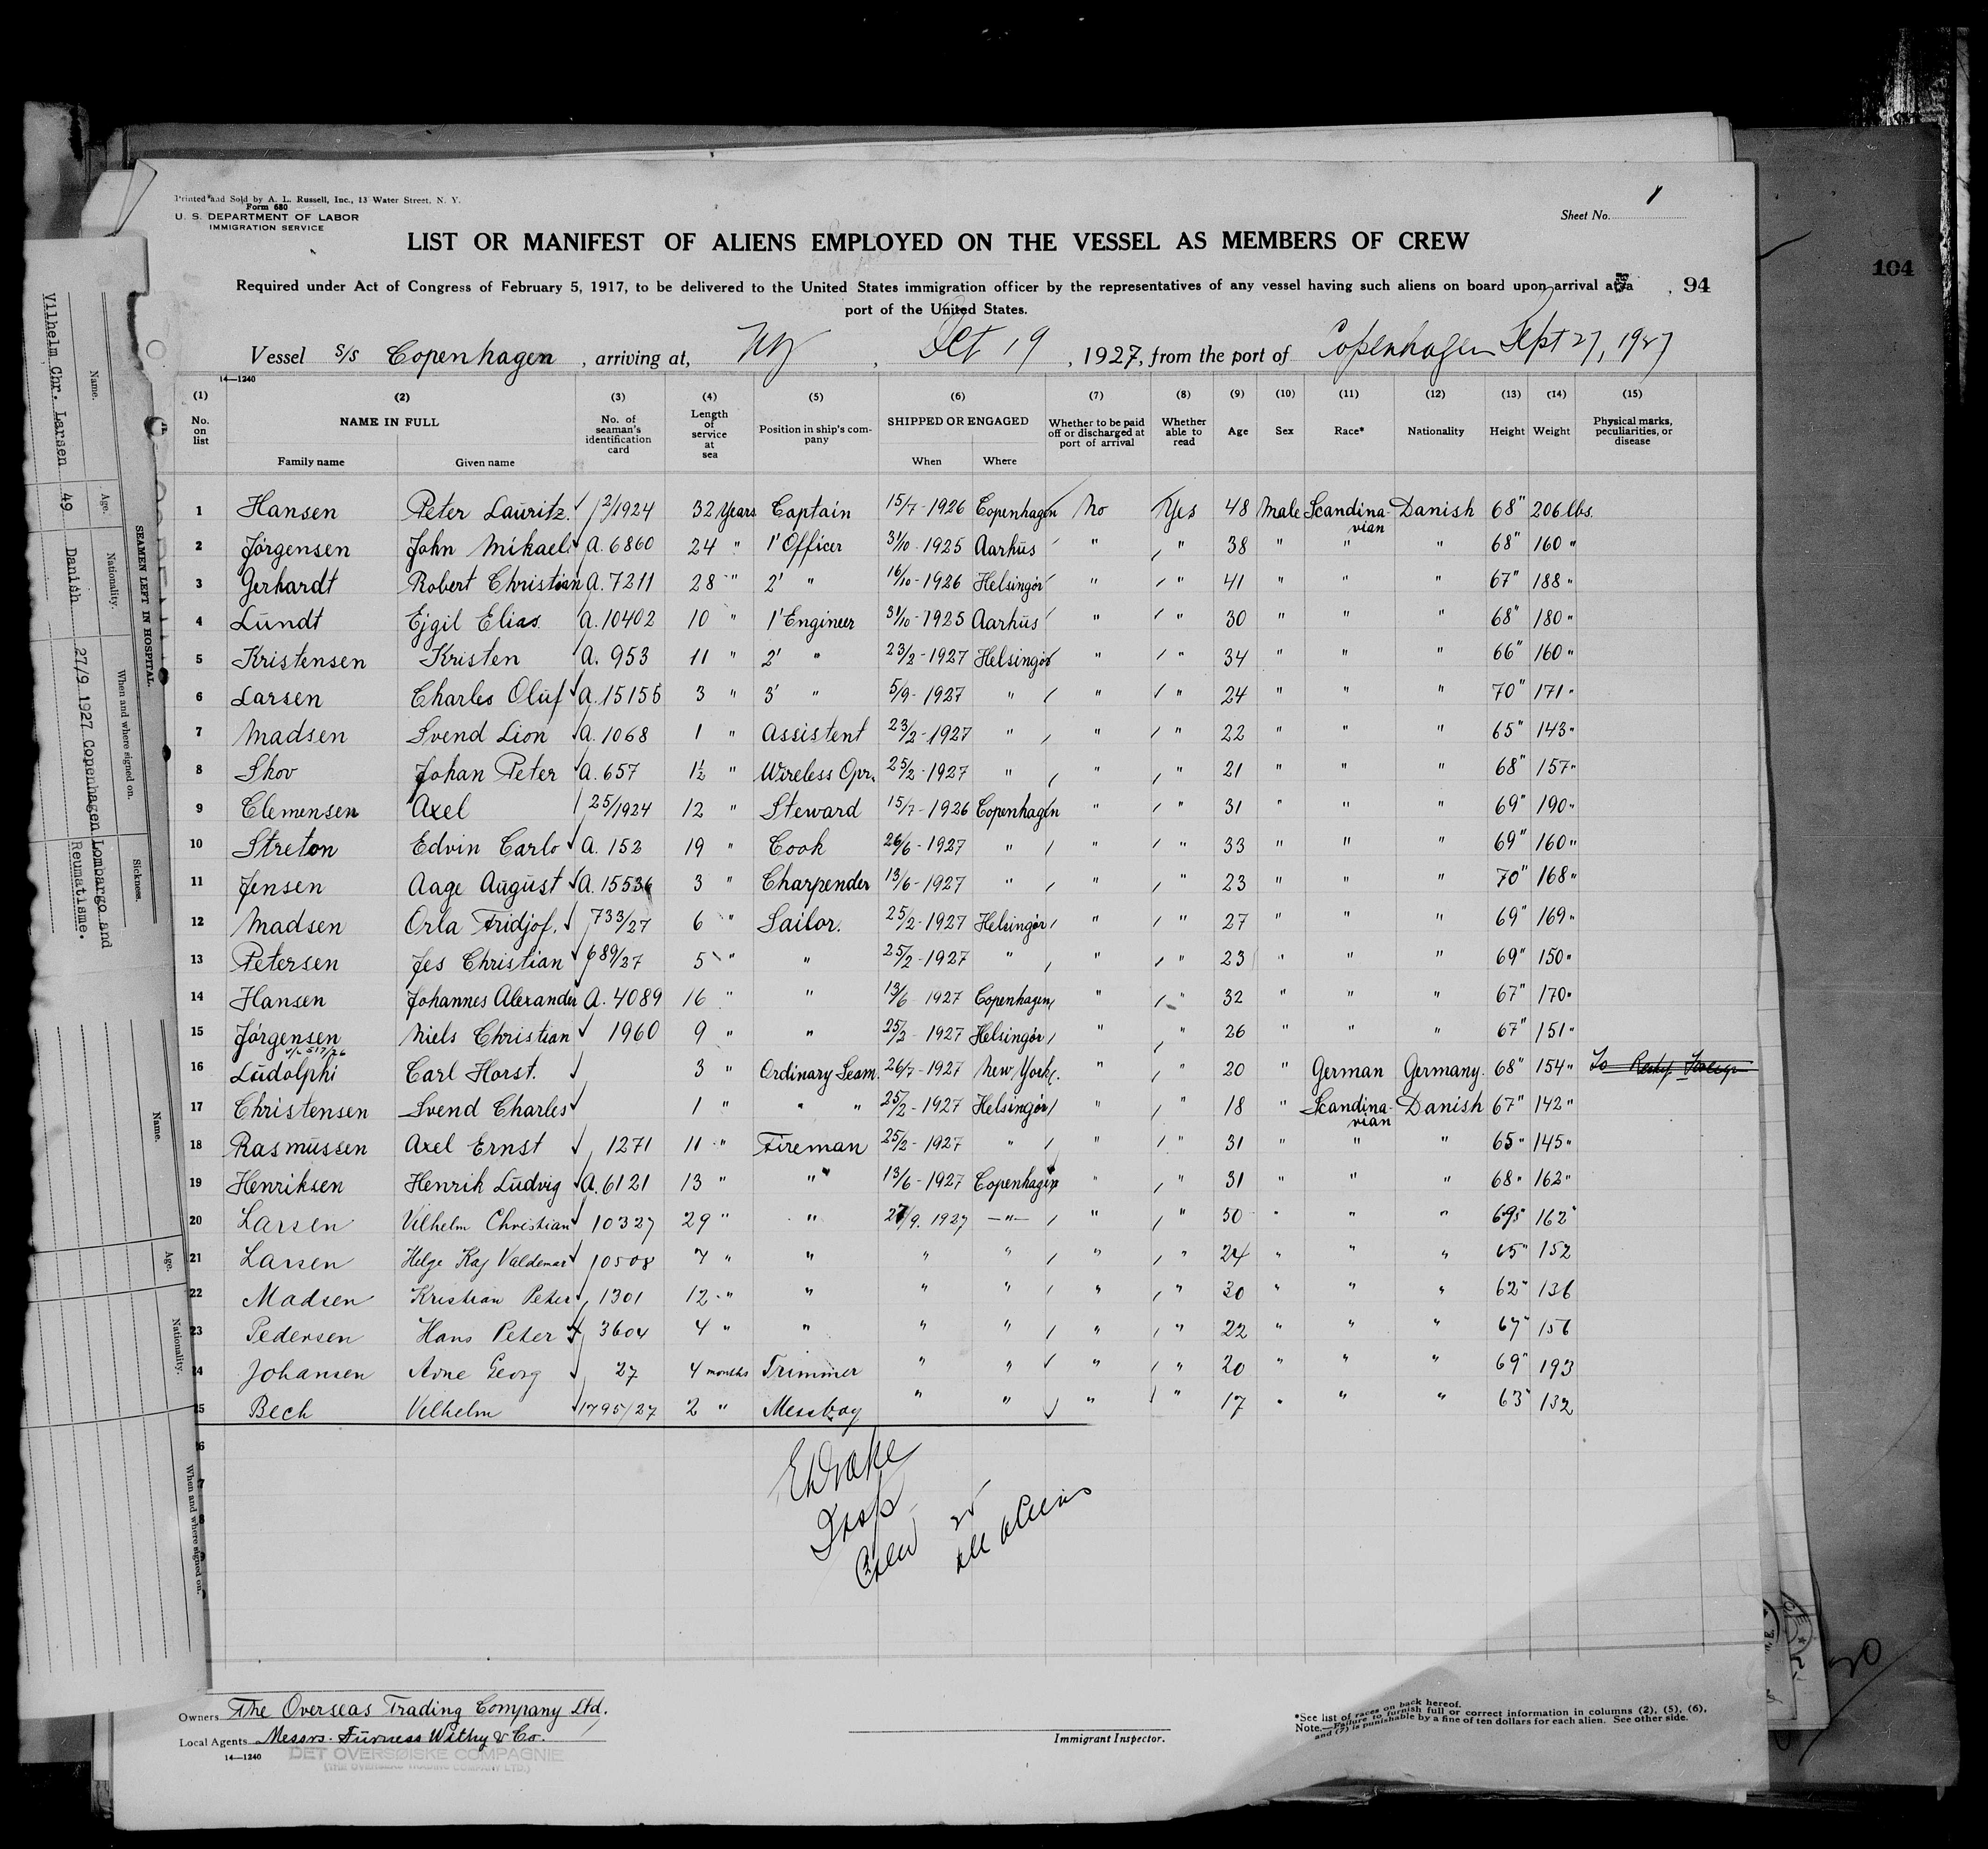 Printed and Sold by A. L. Russell, Inc., 13 Water Street, N. Y.
Form 680
U. S. DEPARTMENT OF LABOR
IMMIGRATION SERVICE
Sheet No. 1
LIST OR MANIFEST OF ALIENS EMPLOYED ON THE VESSEL AS MEMBERS OF CREW
104
Required under Act of Congress of February 5, 1917, to be delivered to the United States immigration officer by the representatives of any vessel having such aliens on board upon arrival at a
94
port of the United States.
Vessel S/S Copenhagen, arriving at, NY, Oct 19, 1927, from the port of Copenhagen Sept 27, 1927
14—1240
(1) (2) (3) (4) (5) (6) (7) (8) (9) (10) (11) (12) (13) (14) (15)
No. on list
NAME IN FULL
Family name
Given name
No. of seaman's identification card
Length of service at sea
Position in ship's company
SHIPPED OR ENGAGED
When
Where
Whether to be paid off or discharged at port of arrival
Whether able to read
Age
Sex
Race*
Nationality
Height
Weight
Physical marks, peculiarities, or disease
1 Hansen Peter Lauritz. 12/1924 32 Years Captain 15/7-1926 Copenhagen No Yes 48 Male Scandinavian Danish 68" 206 lbs.
2 Jörgensen John Mikael A. 6860 24 " 1' Officer 31/10-1925 Aarhus " " 38 " " " 68" 160 "
3 Gerhardt Robert Christian A. 7211 28 " 2' " 16/10-1926 Helsingör " " 41 " " " 67" 188 "
4 Lundt Ejgil Elias A. 10402 10 " 1' Engineer 31/10-1925 Aarhus " " 30 " " " 68" 180 "
5 Kristensen Kristen A. 953 11 " 2' " 23/2-1927 Helsingör " " 34 " " " 66" 160 "
6 Larsen Charles Oluf A. 15155 3 " 3' " 5/9-1927 " " " 24 " " " 70" 171 "
7 Madsen Svend Lion A. 1068 1 " Assistent 23/2-1927 " " " 22 " " " 65" 143 "
8 Skov Johan Peter A. 657 1½ " Wireless Opr. 25/2-1927 " " " 21 " " " 68" 157 "
9 Clemensen Axel 25/1924 12 " Steward 15/7-1926 Copenhagen " " 31 " " " 69" 190 "
10 Streton Edvin Carlo A. 152 19 " Cook 26/6-1927 " " " 33 " " " 69" 160 "
11 Jensen Aage August A. 15536 3 " Charpender 13/6-1927 " " " 23 " " " 70" 168 "
12 Madsen Orla Fridjof. 733/27 6 " Sailor. 25/2-1927 Helsingör " " 27 " " " 69" 169 "
13 Petersen Jes Christian 689/27 5 " " 25/2-1927 " " " 23 " " " 69" 150 "
14 Hansen Johannes Alexander A. 4089 16 " " 13/6 1927 Copenhagen " " 32 " " " 67" 170 "
15 Jörgensen Niels Christian 1960 9 " " 25/2 1927 Helsingör " " 26 " " " 67" 151 "
16 Ludolphi Carl Horst. 3 " Ordinary Seam. 26/7-1927 New York. " " 20 " German Germany. 68" 154 " To
17 Christensen Svend Charles 1 " " " 25/2-1927 Helsingör " " 18 " Scandinavian Danish 67" 142 "
18 Rasmussen Axel Ernst 1271 11 " Fireman 25/2-1927 " " " 31 " " " 65" 145 "
19 Henriksen Henrik Ludvig A. 6121 13 " " 13/6-1927 Copenhagen " " 31 " " " 68" 162 "
20 Larsen Vilhelm Christian 10327 29 " " 27/9. 1927 —"— " " 50 " " " 69,5" 162 "
21 Larsen Helge Kaj Valdemar 10508 7 " " " " " " 24 " " " 65" 152
22 Madsen Kristian Peter 1301 12 " " " " " " 30 " " " 62" 136
23 Pedersen Hans Peter 3604 4 " " " " " " 22 " " " 67" 156
24 Johansen Arne Georg 27 4 months Trimmer " " " " 20 " " " 69" 193
25 Bech Vilhelm 1795/27 2 " Messboy " " " " 17 " " " 63" 132
EDrake
Insp
Crew
all aliens
Owners The Overseas Trading Company Ltd.
Local Agents Messrs. Furness Withy & Co.
14—1240
DET OVERSØISKE COMPAGNIE
(THE OVERSEAS TRADING COMPANY LTD.)
Immigrant Inspector.
*See list of races on back hereof.
Note.—Failure to furnish full or correct information in columns (2), (5), (6), and (7) is punishable by a fine of ten dollars for each alien. See other side.
SEAMEN LEFT IN HOSPITAL.
Name. Age. Nationality. When and where signed on. Sickness.
Vilhelm Chr. Larsen 49 Danish 27/9 1927 Copenhagen Lombargo and
Reumatisme.
Name. Age. Nationality. When and where signed on.